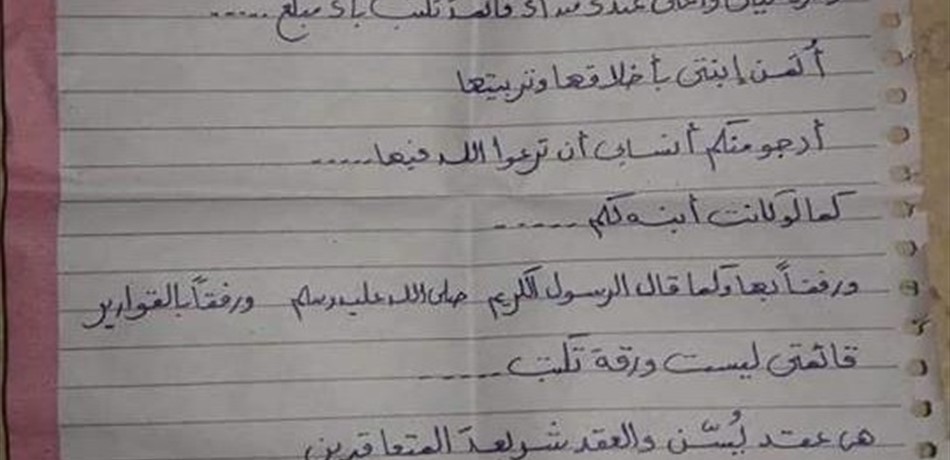 وأغلى عندى من أى قائمة تكتب بأى مبلغ .....
أثمن إبنتى بأخلاقها وتربيتها
أرجو منكم أنسابى أن ترعوا الله فيها .....
كما لو كانت أبنه لكم ......
ورفقاً بها وكما قال الرسول الكريم صلى الله عليه وسلم ورفقاً بالقوارير
قائمتى ليست ورقة تكتب ......
هى عقد يُسّن والعقد شريعة المتعاقدين